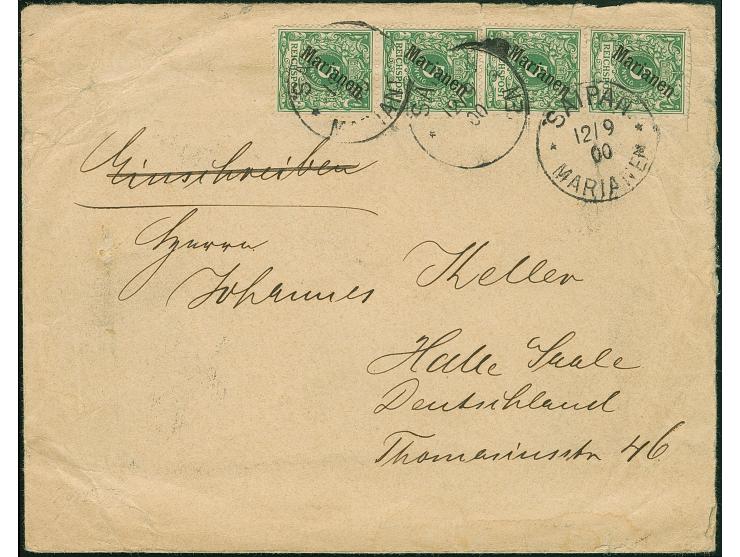 REICHSPOST REICHSPOST REICHSPOST REICHSPOST
Marianen Marianen Marianen Marianen
SAIPAN
12/9
00
* MARIANEN *
Einschreiben
Herrn
Johannes Keller
Halle Saale
Deutschland
Thomasiusstr 46